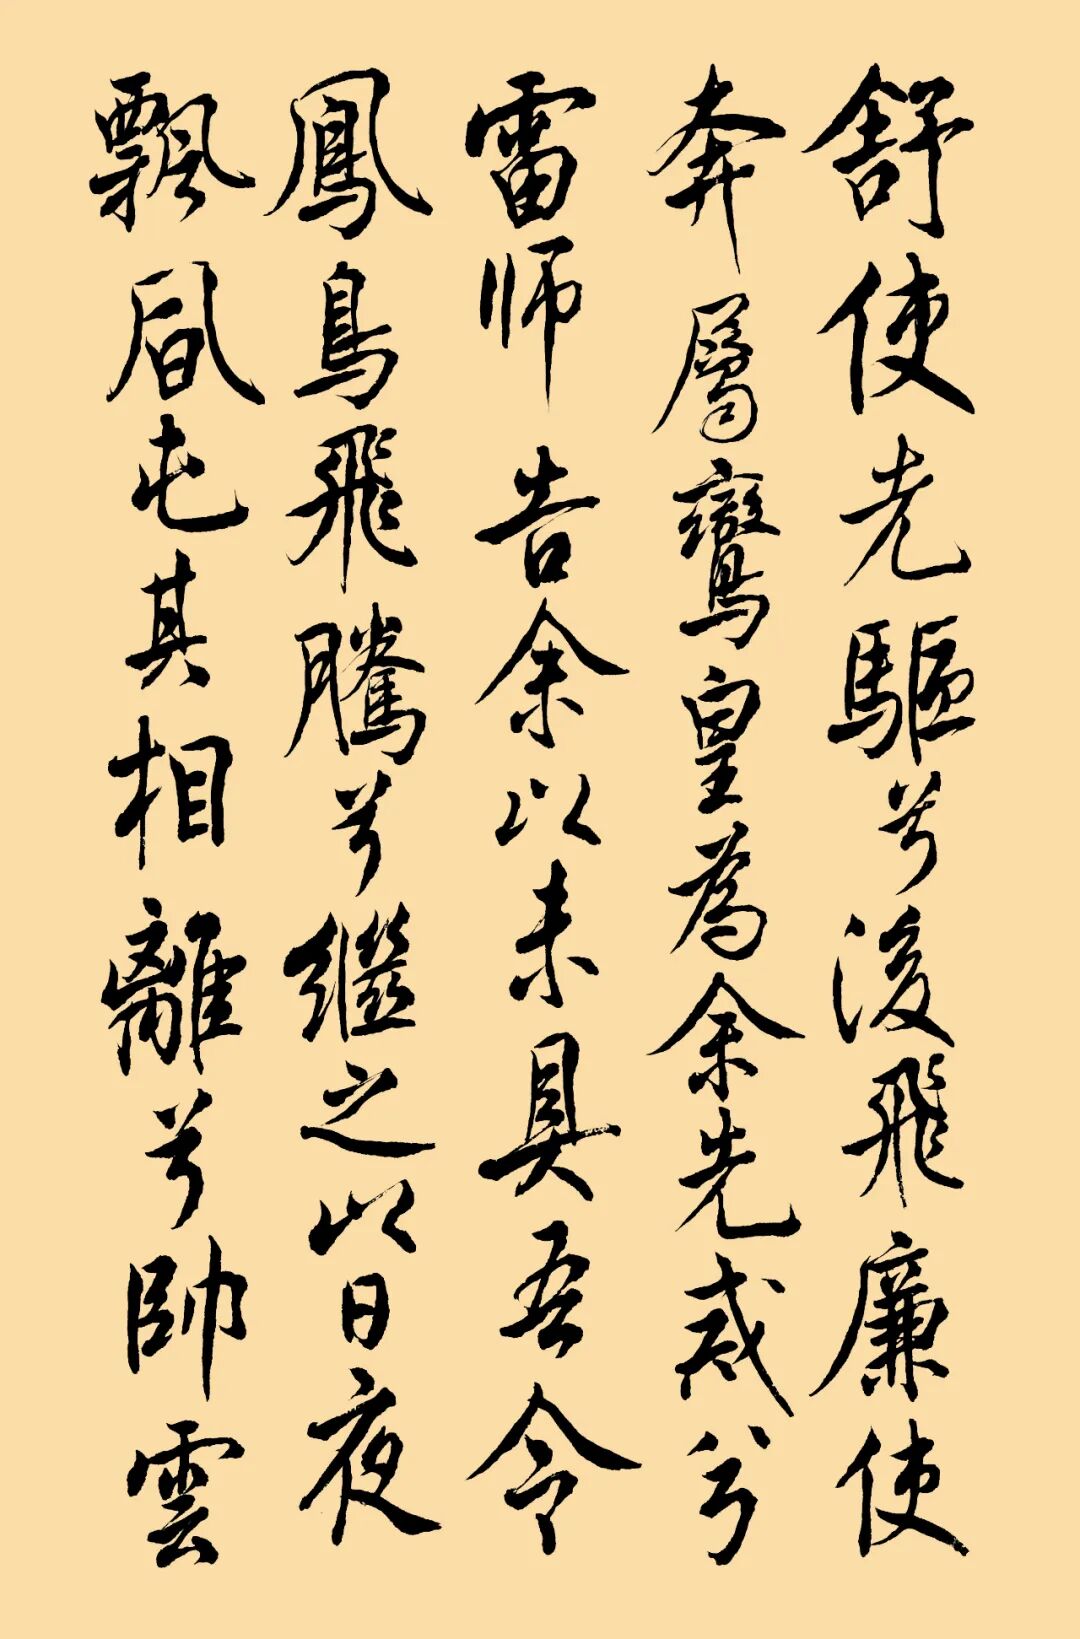 舒使先驅兮後飛廉使
奔屬鸞皇為余先戒兮
雷師告余以未具吾令
鳳鳥飛騰兮繼之以日夜
飄風屯其相離兮帥雲